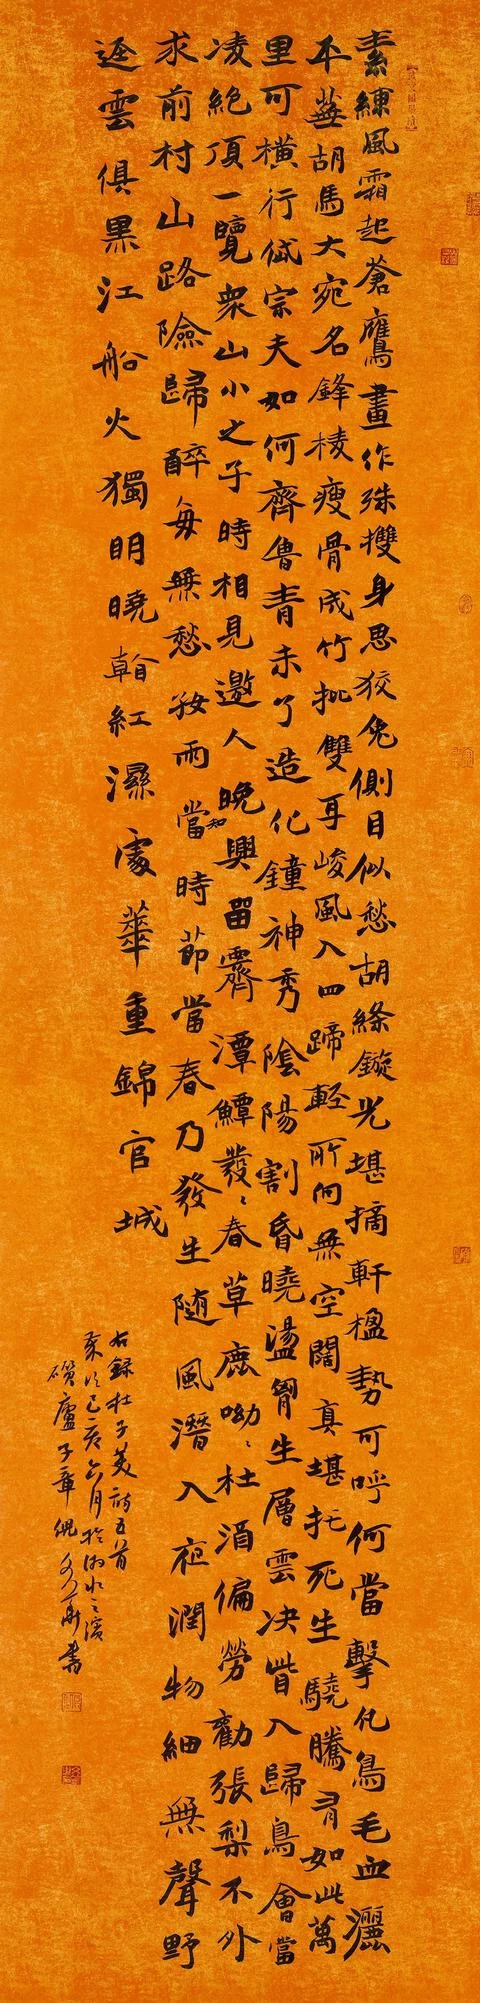 素練風霜起蒼鷹畫作殊㩳身思狡兔側目似愁胡絛鏇光堪摘軒楹勢可呼何當擊凡鳥毛血灑
平蕪胡馬大宛名鋒棱瘦骨成竹批雙耳峻風入四蹄輕所向無空闊真堪托死生驍騰有如此萬
里可橫行岱宗夫如何齊魯青未了造化鐘神秀陰陽割昏曉盪胷生層雲決眥入歸鳥會當
凌絕頂一覽衆山小之子時相見邀人晚興留霽潭鱣發〻春草鹿呦〻杜酒偏勞勸張梨不外
求前村山路險歸醉每無愁好雨當知時節當春乃發生隨風潛入夜潤物細無聲野
逕雲俱黑江船火獨明曉看紅濕處華重錦官城
右錄杜子美詩五首
己亥六月於湘水之濱
廬子章倪書